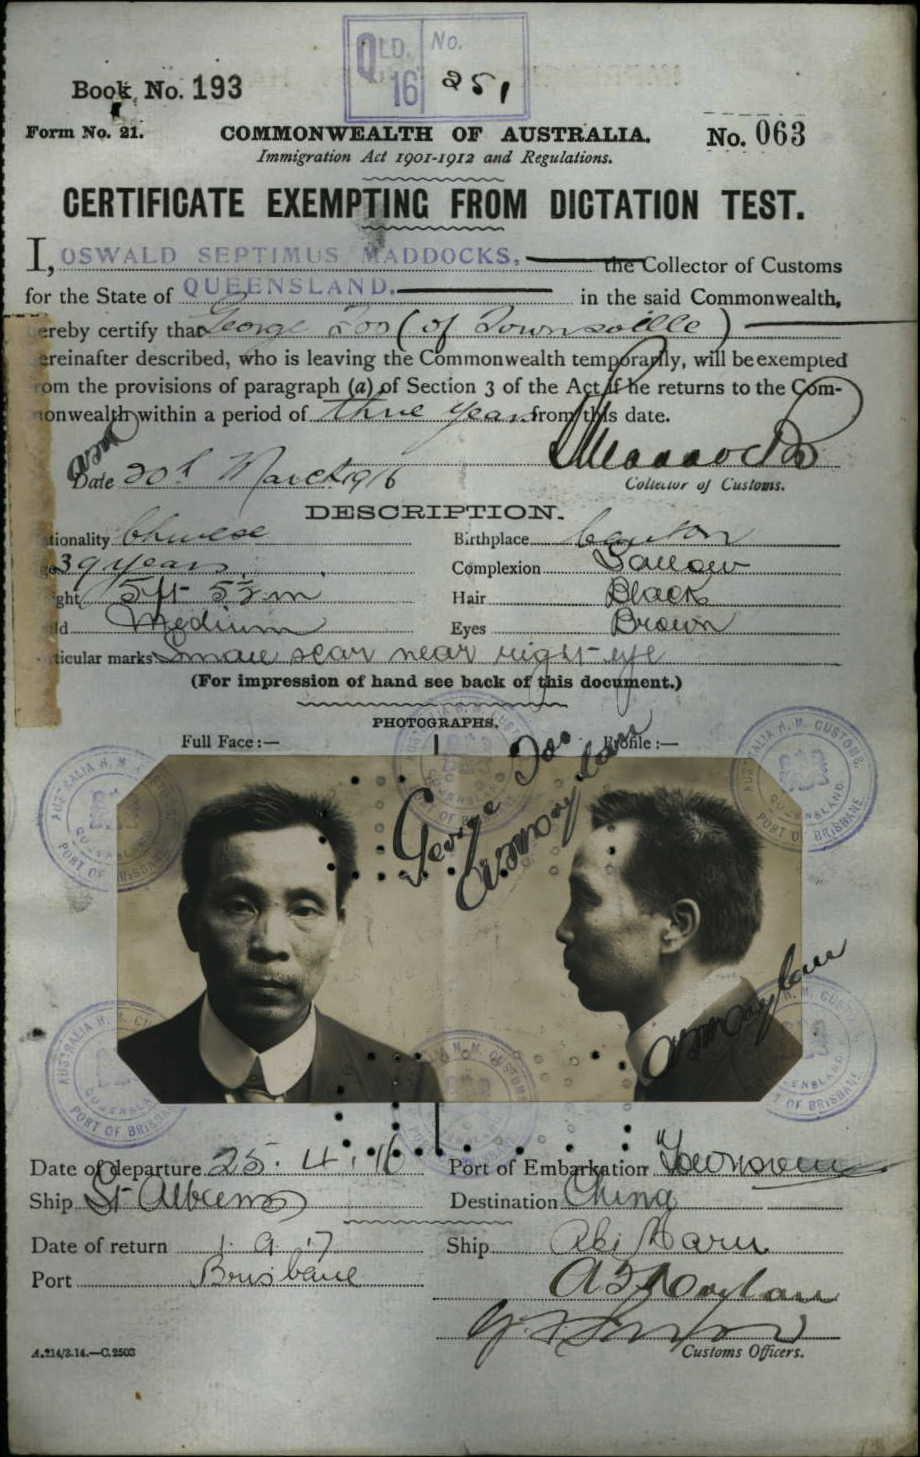 QLD. No.
16 251
Book No. 193
Form No. 21. COMMONWEALTH OF AUSTRALIA. No. 063
Immigration Act 1901-1912 and Regulations.
CERTIFICATE EXEMPTING FROM DICTATION TEST.
I, OSWALD SEPTIMUS MADDOCKS, the Collector of Customs
for the State of QUEENSLAND. in the said Commonwealth,
hereby certify that George (of Townsville)
hereinafter described, who is leaving the Commonwealth temporarily, will be exempted
from the provisions of paragraph (a) of Section 3 of the Act if he returns to the Com-
monwealth within a period of three years from this date.
Date 20th March 1916
Collector of Customs.
DESCRIPTION.
tionality Chinese Birthplace Canton
39 years Complexion Sallow
ght 5ft 5½in Hair Black
ld Medium Eyes Brown
ticular marks Small scar near right eye
(For impression of hand see back of this document.)
PHOTOGRAPHS.
Full Face :— Profile :—
George
AUSTRALIA H. M. CUSTOMS.
QUEENSLAND
PORT OF BRISBANE
Date of departure 25.4.16 Port of Embarkation Townsville
Ship St Albans Destination China
Date of return 1.9.17 Ship Aki Maru
Port Brisbane
Customs Officers.
A.214/3.14.—C.2503